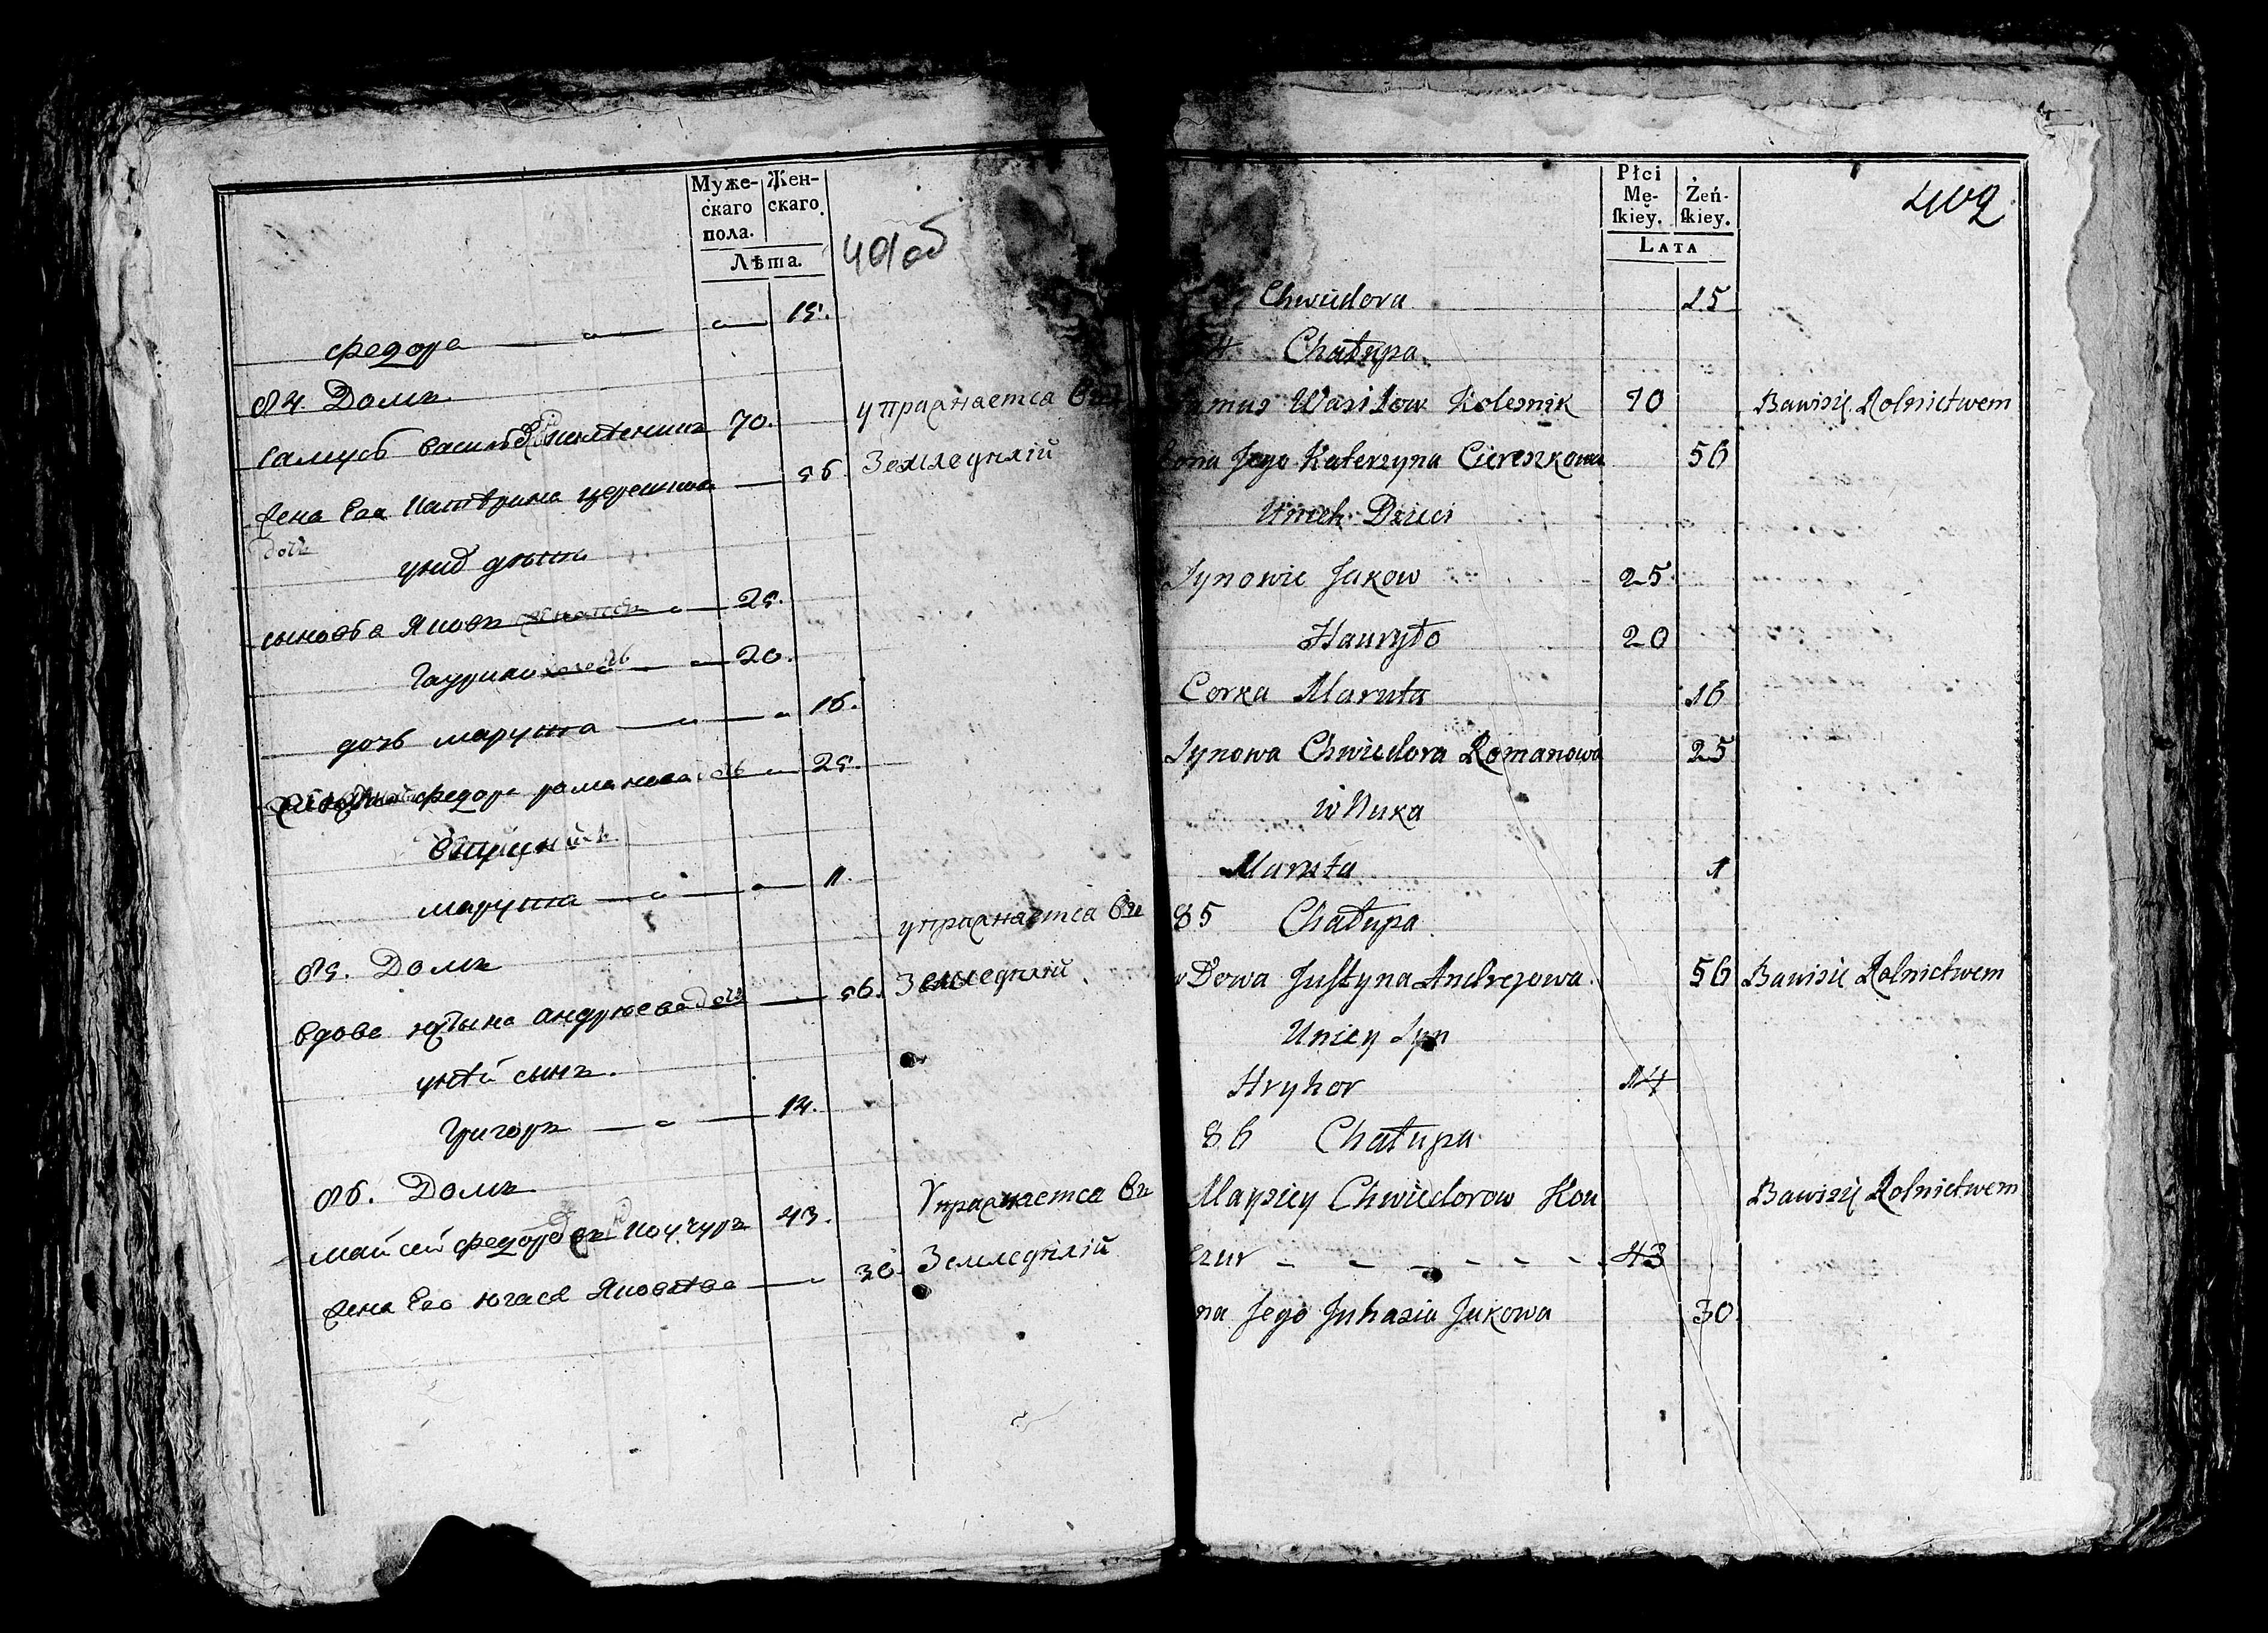 Муже-
скаго
пола.
Жен-
скаго.
Лѣта.
401об
федора 15.
84. Домъ
Самусь Васильевъ 70. упражнаетса въ
Жена Его Катерина Церешкова 56. Земледѣлій
доч
у них дѣти
сыновьа Яковъ 25.
Гаурила 20.
дочь марута 16.
федора романова 25.
марута 1.
85. Домъ упражнаетса въ
вдова юстына андрюева 56. Земледѣлій
у ней сынъ.
Григоръ 14.
86. Домъ Упражнаетса въ
Майсей федоровъ Коучуръ 43.
Жена Его югася Яковлева 30. Земледѣлій
Płci
Mę-
skiey.
Żeń-
skiey.
LATA
402
Chwiedora 15
4 Chałupa
amus Wasilow Kolesnik 70 Bawisię Rolnictwem
ona Jego Katerzyna Ciereszkowa 56
Unich Dzieci
Synowie Jakow 25
Hauryło 20
Corka Maruta 16
Synowa Chwiedora Romanowa 25
wNuka
Maruta 1
85 Chałupa
wDowa Justyna Andrejowa 56 Bawisie Rolnictwem
Uniey Syn
Hryhor 14
86 Chałupa
Maysiey Chwiedorow Kou Bawisię Rolnictwem
czur - - - - - - 43
na Jego Juhasia Jakowa 30